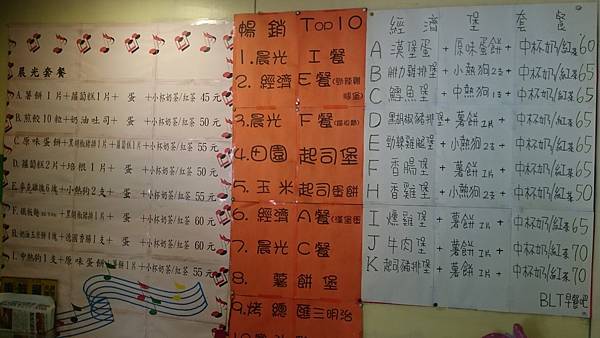 晨光套餐
A.薯餅1片+蘿蔔糕1片+ 蛋 +小杯奶茶/紅茶 45元
B.煎餃10粒+奶油吐司+ 蛋 +小杯奶茶/紅茶 50元
C.原味蛋餅+黑胡椒豬排1片+蘿蔔糕1片+小杯奶茶/紅茶 55元
D.蘿蔔糕2片+培根1片+ 蛋 +小杯奶茶/紅茶 50元
E.麥克雞塊5塊+小熱狗2支+ 蛋 +小杯奶茶/紅茶 55元
F.鐵板麵+黑胡椒豬排1片+ 蛋 +小杯奶茶/紅茶 60元
+德國香腸1支+ 蛋 +小杯奶茶/紅茶 60元
I.中熱狗1支+原味蛋餅+薯餅1片+小杯奶茶/紅茶 55元
暢銷 TOP10
1.晨光 I餐
2.經濟 E餐(勁辣雞腿堡)
3.晨光 F餐(鐵板麵)
4.田園 起司堡
5.玉米起司蛋餅
6.經濟 A餐(漢堡蛋)
7.晨光 C餐
8. 薯餅堡
9.烤總匯三明治
經濟堡套餐
A 漢堡蛋+原味蛋餅+中杯奶/紅茶60
B 雞排堡+小熱狗2支+中杯奶/紅茶65
C 鱈魚堡+中熱狗1支+中杯奶/紅茶65
D 黑胡椒豬排堡+薯餅1片+中杯奶/紅茶65
E 勁辣雞腿堡+小熱狗2支+中杯奶/紅茶65
F 香腸堡+薯餅1片+中杯奶/紅茶65
H 香雞堡+小熱狗2支+中杯奶/紅茶50
I 燻雞堡+薯餅1片+中杯奶/紅茶65
J 牛肉堡+薯餅1片+中杯奶/紅茶70
K 起司豬排堡+薯餅1片+中杯奶/紅茶70
BLT早餐吧